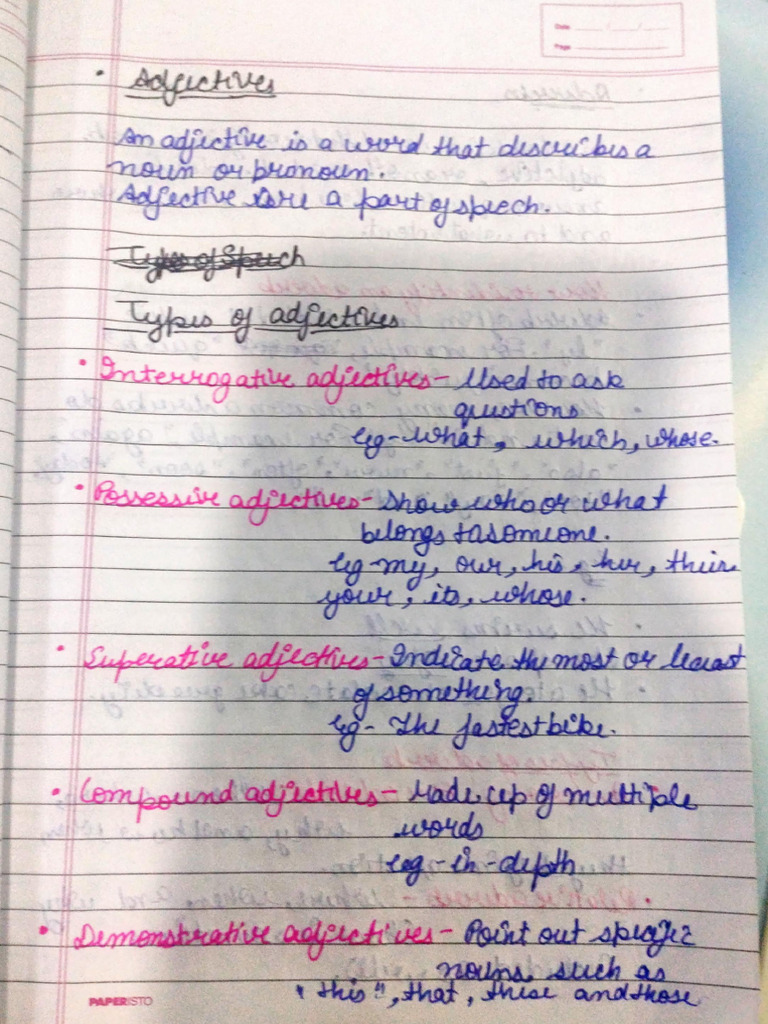 Date
Page
• Adjectives
An adjective is a word that describes a
noun or pronoun.
Adjective are a part of speech.
Types of Speech
Types of adjectives
• Interrogative adjectives - Used to ask
questions
eg - what, which, whose.
• Possessive adjectives - show who or what
belongs to someone.
eg - my, our, his, her, their
your, its, whose.
• Superative adjectives - Indicate the most or least
of something.
eg - The fastest bike.
• Compound adjectives - Made up of multiple
words
eg - in-depth
• Demonstrative adjectives - Point out specific
nouns such as
"this", that, these and those
PAPERISTO